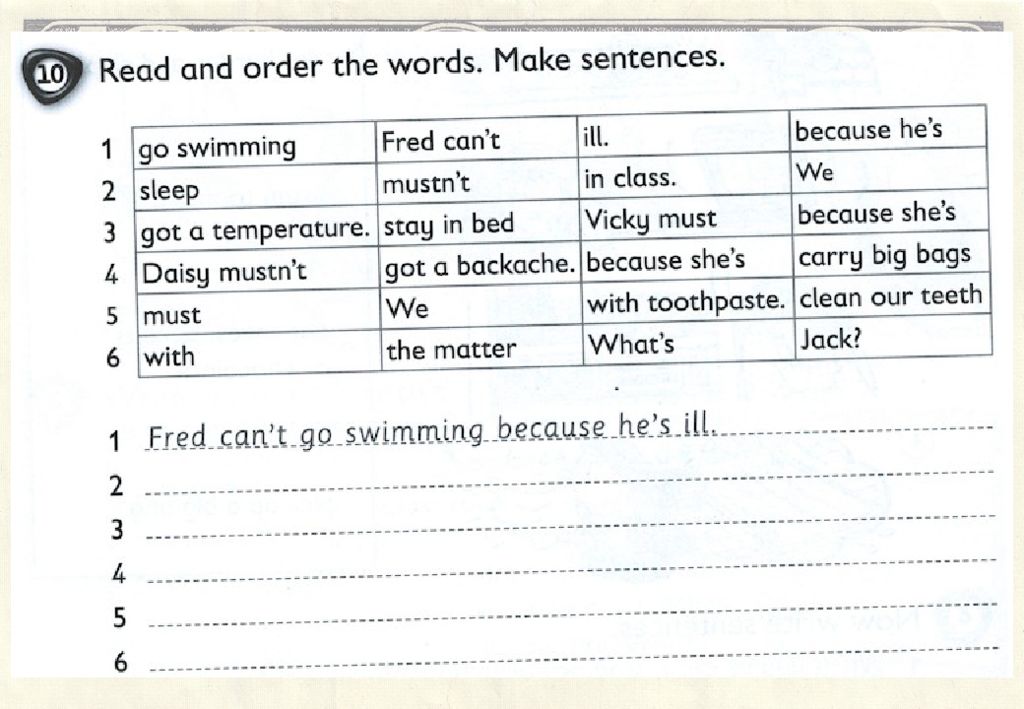 10 Read and order the words. Make sentences.
1 go swimming Fred can't ill. because he's
2 sleep mustn't in class. We
3 got a temperature. stay in bed Vicky must because she's
4 Daisy mustn't got a backache. because she's carry big bags
5 must We with toothpaste. clean our teeth
6 with the matter What's Jack?
1 Fred can't go swimming because he's ill.
2
3
4
5
6